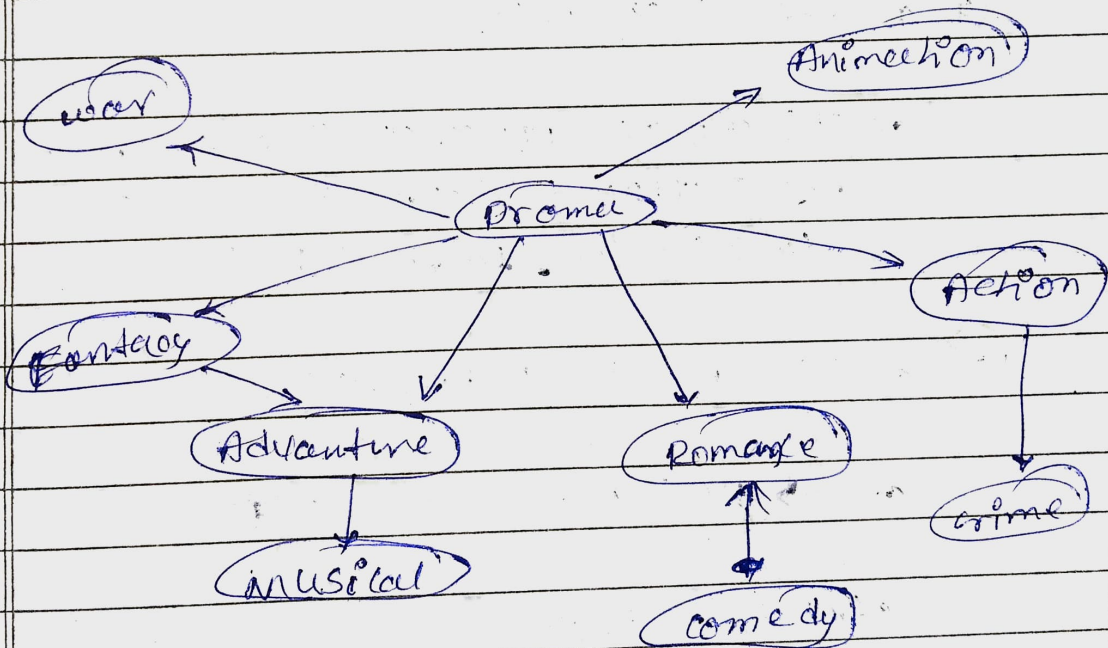 Animation
war
Drama
Action
Fantacy
Advanture
Romance
crime
musical
comedy